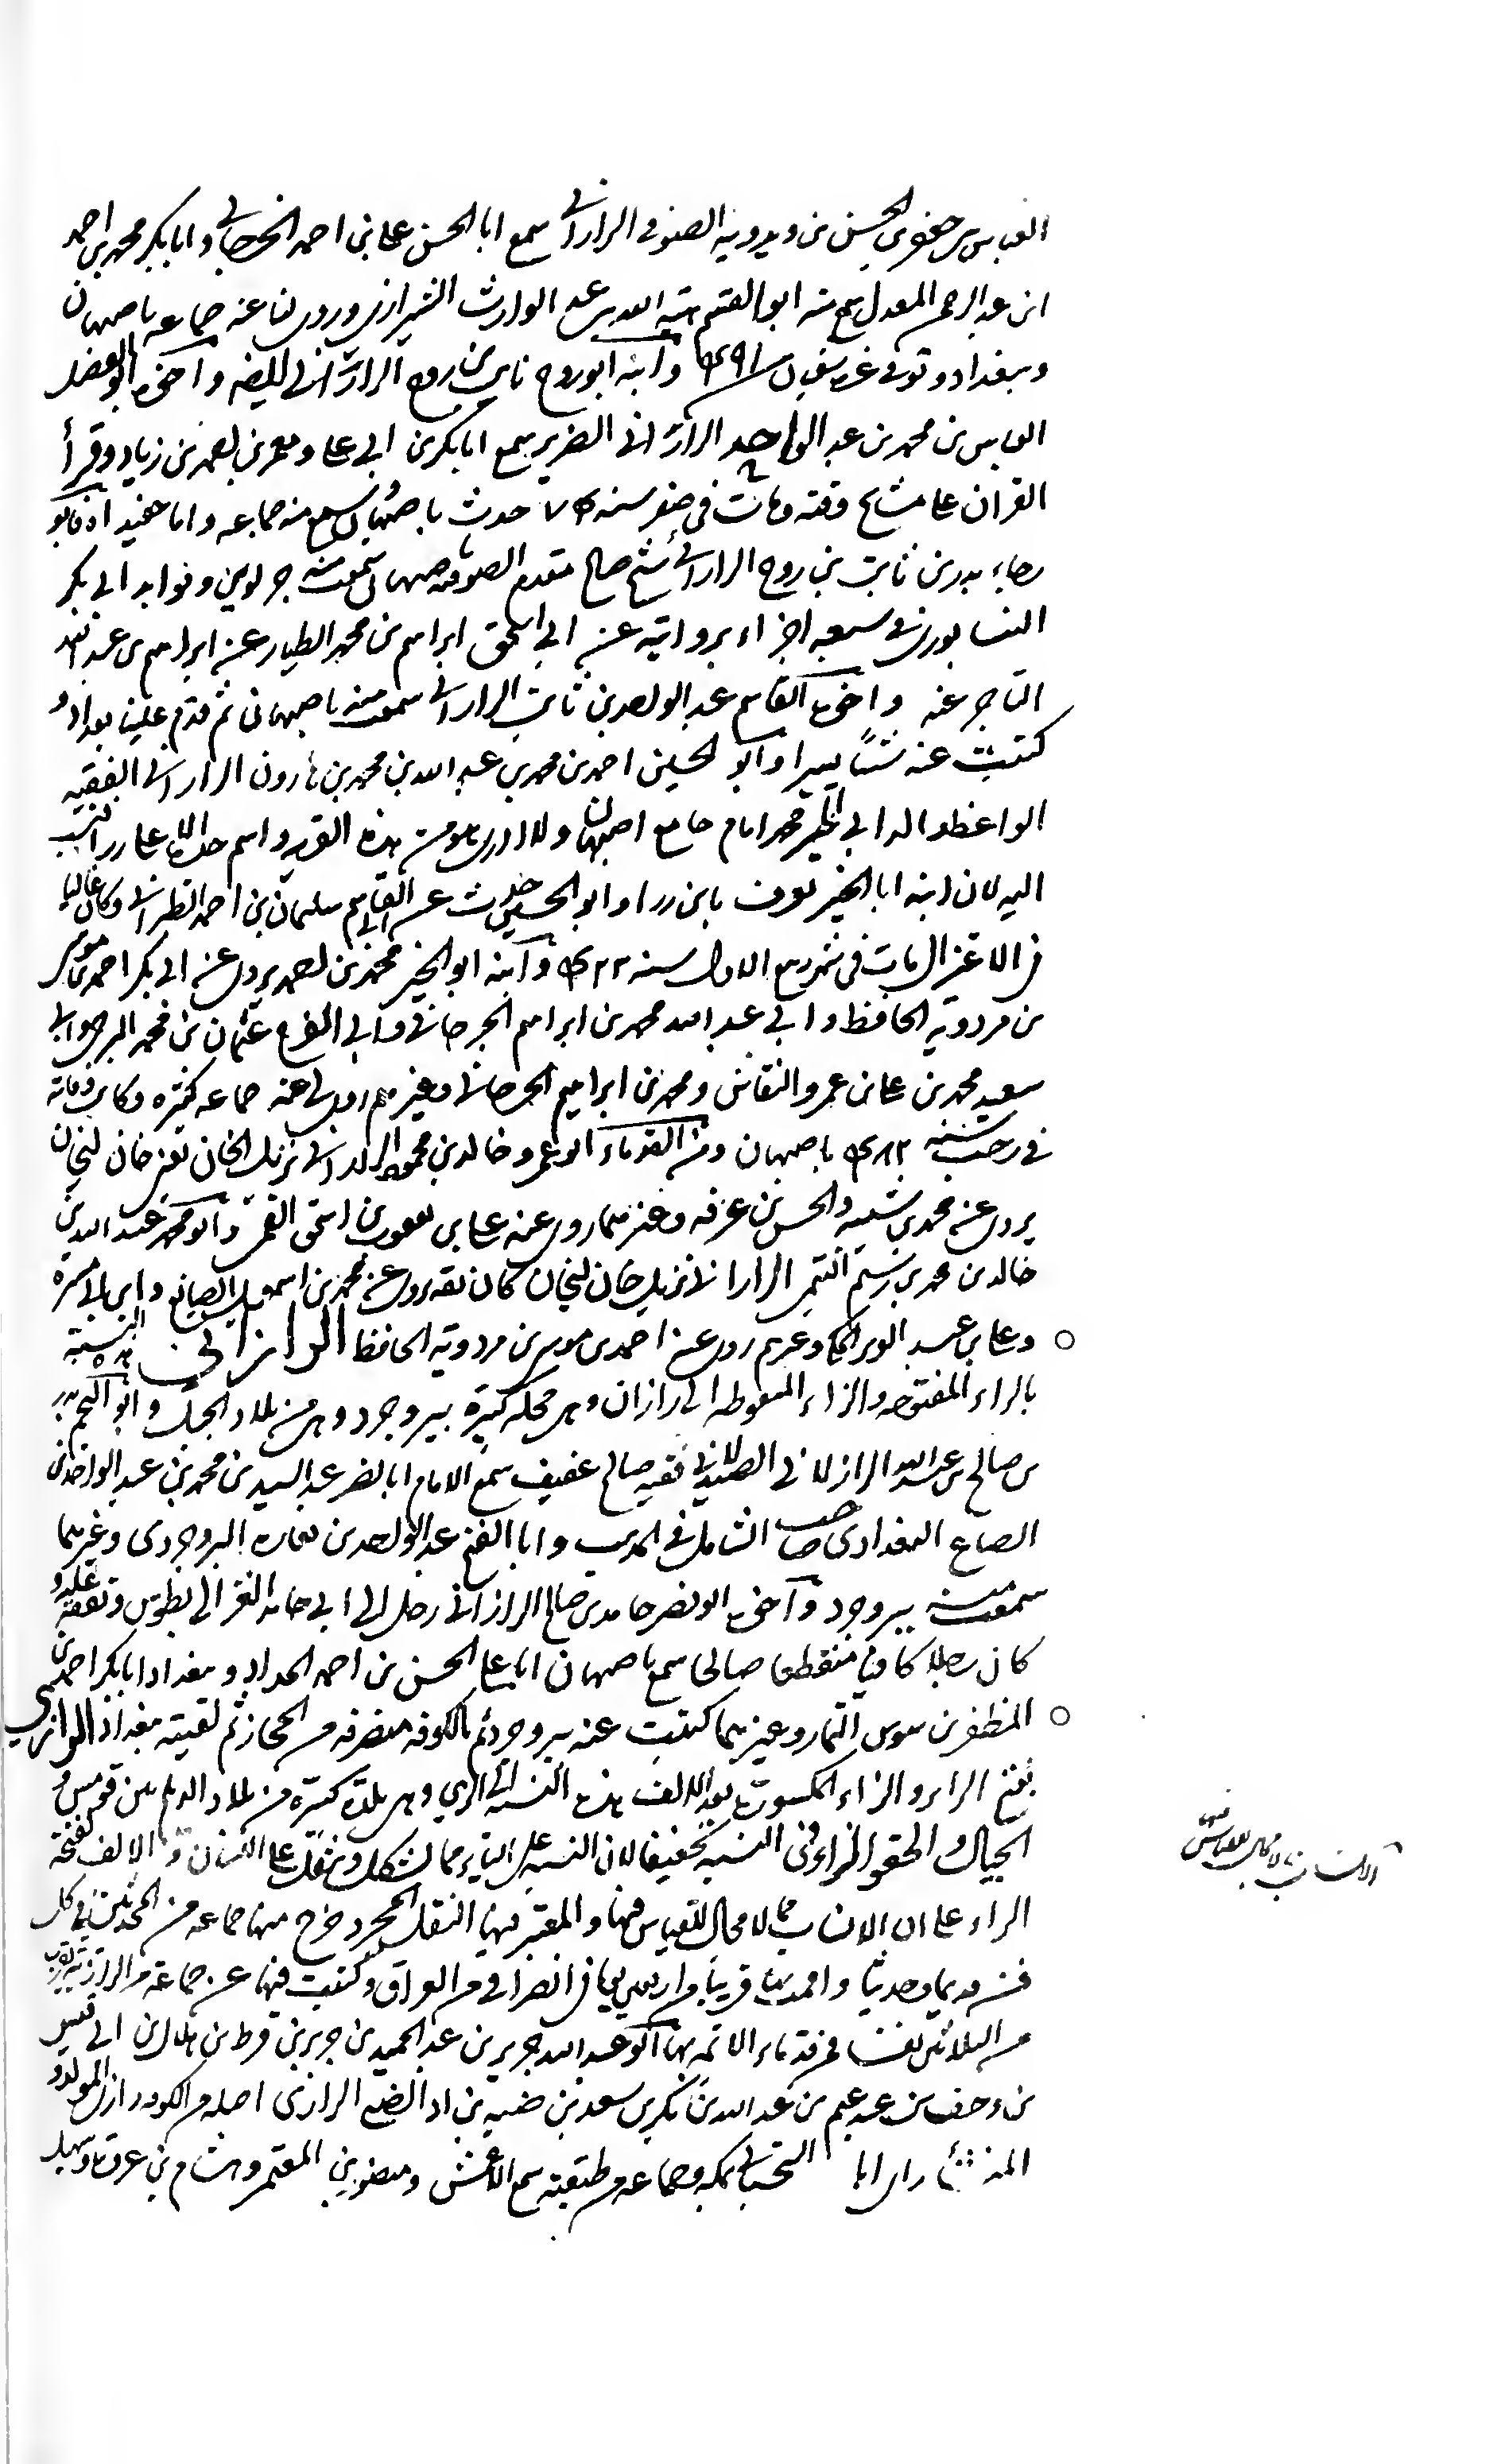 العباس بن جعفر بن الحسن بن ويدويه الصوفي الراراني سمع ابا الحسن علي بن احمد الخرجاني وابا بكر محمد بن احمد
ابن عبد الرحمن المعدل سمع منه ابو القسم هبة الله بن عبد الوارث الشيرازي وروى لنا عنه جماعه باصبهان
وببغداد وتوفي غرة شعبان سنة ٤٩١ وابنه ابو روح ثابت بن روح الراراني واخوه ابو الفضل
العباس بن محمد بن عبد الواحد الراراني الضرير سمع ابا بكر بن ابي علي ومعمر بن احمد بن زياد وقرأ
القران على مشايخ وقته ومات في صفر سنه حدث باصبهان وسمع منه جماعه واما حفيداه فابو
رجاء بدر بن ثابت بن روح الراراني شيخ صالح مقدم الصوفيه باصبهان سمعت منه جزء لوين وفوايد ابي بكر
النيسابوري في سبعه اجزاء بروايته عن ابي اسحق ابراهيم بن محمد الطيار عن ابراهيم بن عبد الله
التاجر عنه واخوه ابو القاسم عبد الواحد بن ثابت الراراني سمعت منه باصبهان ثم قدم علينا بغداد و
كتبت عنه شيئا يسيرا وابو الحسين احمد بن محمد بن عبد الله بن محمد بن هارون الراراني الفقيه
الواعظ والد ابي الخير محمد امام جامع اصبهان ولا ادري هو من هذه القريه واسم جده الاعلى ررا نسب
اليه لان ابنه ابا الخير يعرف بابن ررا وابو الحسين حدث عن ابي القاسم سليمان بن احمد الطبراني وكان غاليا
في الاعتزال مات في شهر ربيع الاول سنه ٤٢٢ وابنه ابو الخير محمد بن احمد يروى عن ابي بكر احمد بن موسى
بن مردويه الحافظ وابي عبد الله محمد بن ابراهيم الجرجاني وابي الفرج عثمان بن محمد البرجي وابي
سعيد محمد بن علي بن عمرو النقاش ومحمد بن ابراهيم الجرجاني وغيرهم روى لي عنه جماعه كثيره وكانت وفاته
في رجب سنه ٤٨٢ باصبهان ومن القدماء ابو عمرو خالد بن محمد الراراني نزيل الخان يعني خان لنجان
يروى عن محمد بن شيبه والحسن بن عرفه وغيرهما روى عنه علي بن يعقوب بن اسحق القمي وابو محمد عبد الله بن
خالد بن محمد بن رستم التيمي الراراني نزيل خان لنجان كان ثقه يروى عن محمد بن اسمعيل الصايغ وابن ابي مسره
وعلي بن عبد العزيز المكي وغيرهم روى عنه احمد بن موسى بن مردويه الحافظ الرازاني هذه النسبه
بالراء المفتوحه والزاء المنقوطه الى رازان وهي محله كبيرة ببروجرد وهي من بلاد الجبل وابو النجم بدر
بن صالح بن عبد الله الرازاني الصيدلاني فقيه صالح عفيف سمع الامام ابا نصر عبد السيد بن محمد بن عبد الواحد بن
الصباغ البغدادي صاحب الشامل في المذهب وابا الفتح عبد الواحد بن نغاره البروجردي وغيرهما
سمعت منه ببروجرد واخوه ابو نصر حامد بن صالح الرازاني رحل الى ابي حامد الغزالي بطوس وتفقه عليه و
كان رجلا كافيا منقطعا صالحا سمع باصبهان ابا علي الحسن بن احمد الحداد وببغداد ابا بكر احمد بن
المظفر بن سوسن التمار وغيرهما كتبت عنه ببروجرد ثم بالكوفه منصرفه من الحجاز ثم لقيته ببغداد الرازي
بفتح الراء والزاء المكسورة بعد الالف هذه النسبه الى الري وهي بلدة كبيرة من بلاد الديلم بين قومس و
الجبال والحقوا الزاء في النسبه تخفيفا لان النسبه على الياء مما يشكل ويثقل على اللسان والالف لفتحة
الراء على ان الانساب مما لا مجال للقياس فيها والمعتبر فيها النقل المجرد خرج منها جماعه من المحدثين في كل
فن قديما وحديثا واقمت بها قريبا من اربعين يوما في انصرافي من العراق وكتبت فيها عن جماعة من الرازيه قريب
من الثلاثين نفسا فمن قدماء الائمه بها ابو عبد الله جرير بن عبد الحميد بن جرير بن قرط بن هلال بن ابي قيس
بن وحف بن عبد غنم بن عبد الله بن بكر بن سعد بن ضبه بن اد الضبي الرازي اصله من الكوفه رازي المولد و
المنشأ راى ايوب السختياني بمكه وجماعه من طبقته سمع الاعمش ومنصور بن المعتمر وهشام بن عروه وسهيل
الانساب لا مجال للقياس فيها